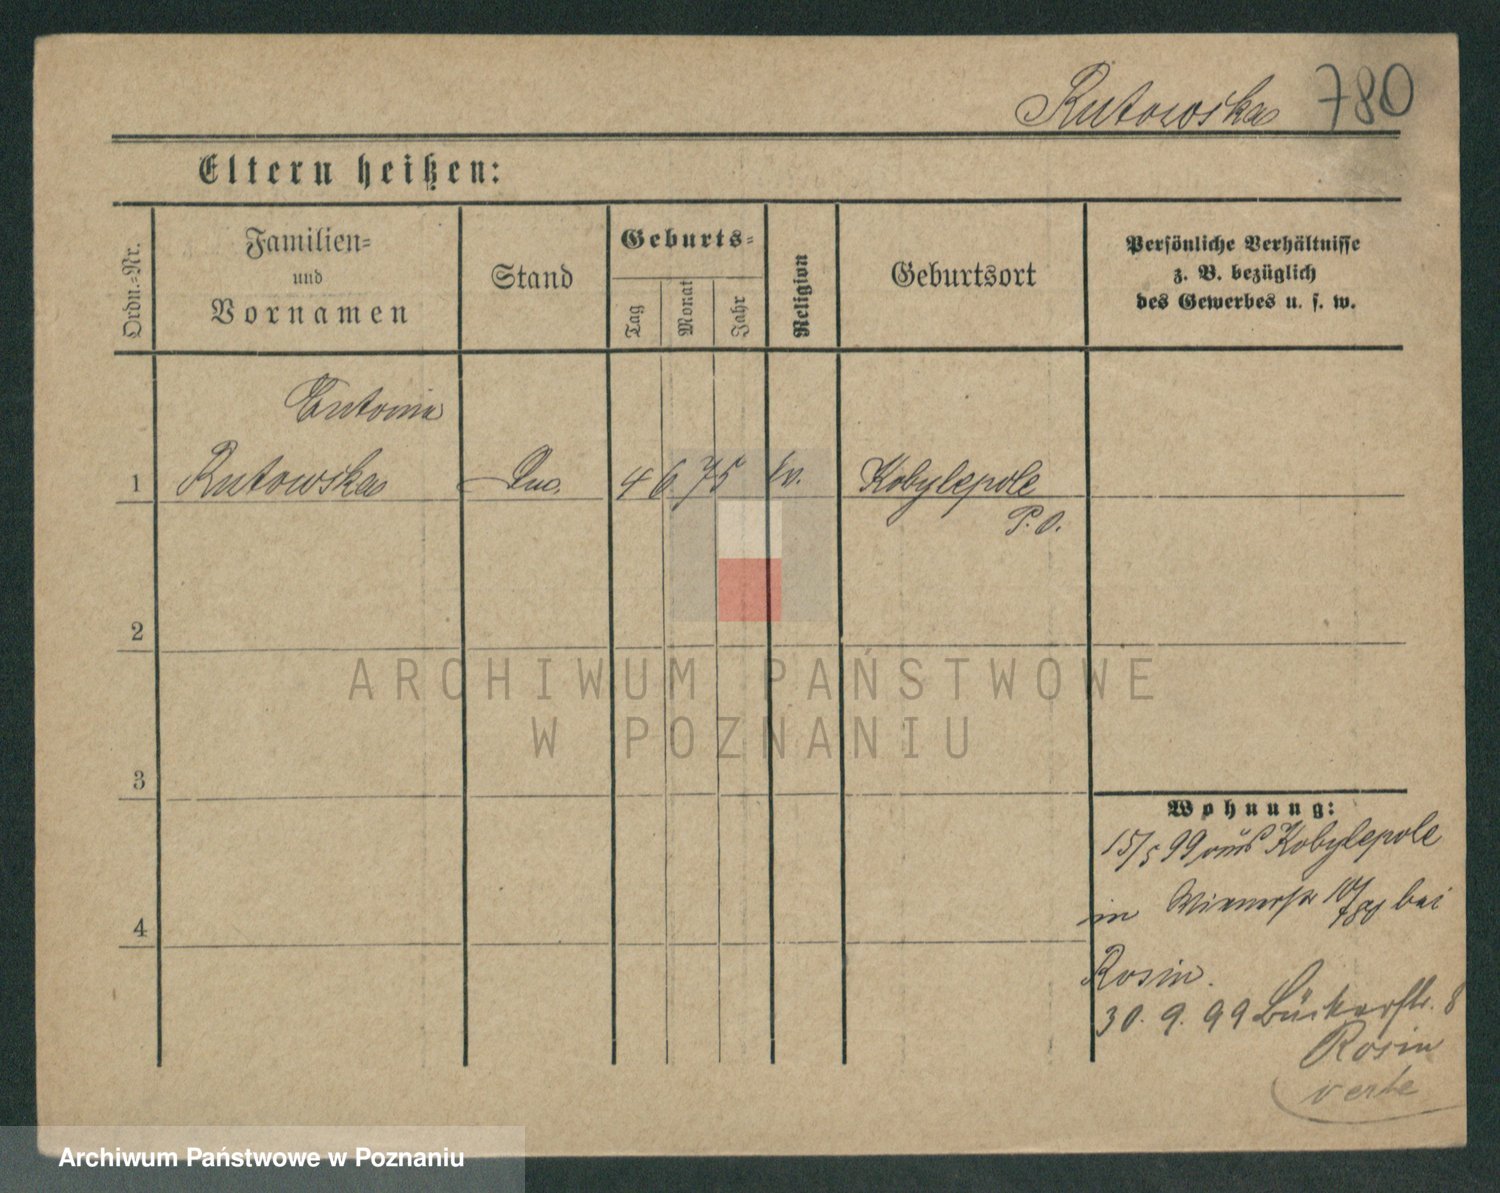 Rutowska 780
Eltern heißen:
Ordn.-Nr.
Familien-
und
Vornamen
Stand
Geburts-
Tag
Monat
Jahr
Religion
Geburtsort
Persönliche Verhältnisse
z. B. bezüglich
des Gewerbes u. s. w.
Antonia
1 Rutowska 4 6 75 Kobylepole
P. O.
2
ARCHIWUM PAŃSTWOWE
W POZNANIU
3
Wohnung:
15/5 99 aus Kobylepole
4
in Wienerstr bei
Rosin.
30. 9. 99 Bäckerstr. 8
Rosin
verte
Archiwum Państwowe w Poznaniu